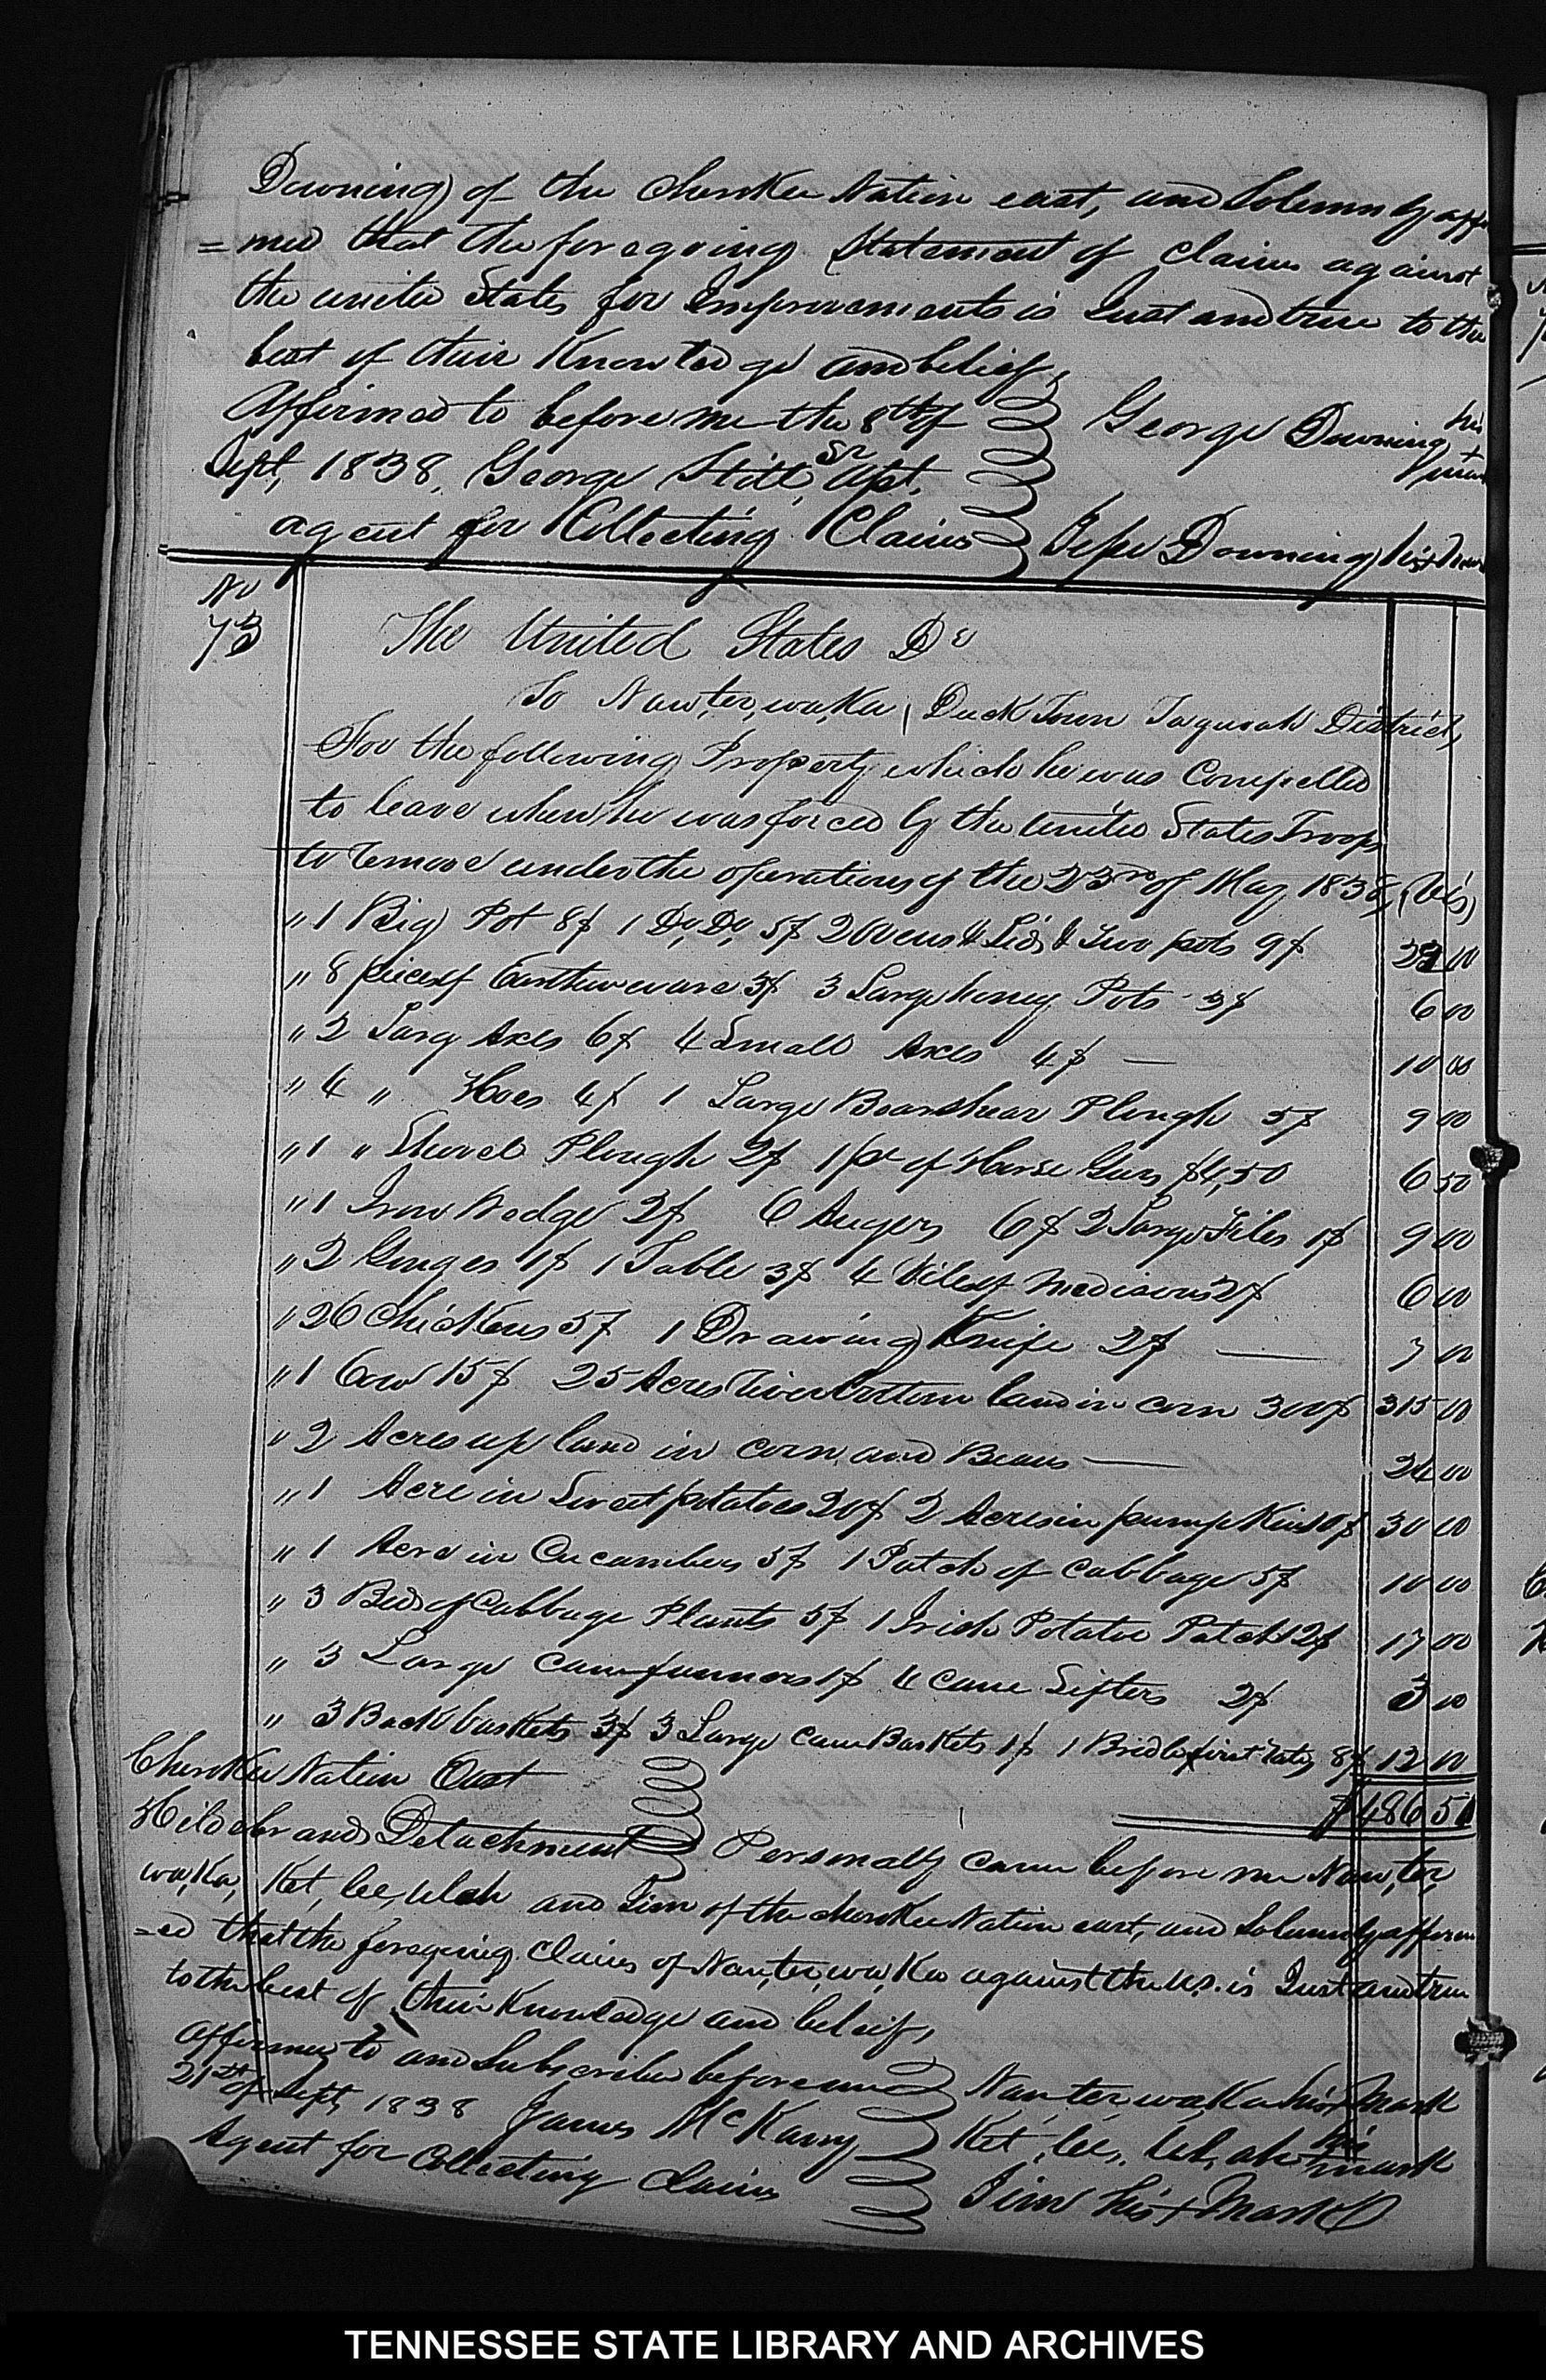 Downing) of the Cherokee Nation east, and Solemnly affir
=med that the foregoing Statement of Claims against
the united States for Improvements is Just and true to the
best of their Knowledge and belief,
Affirmed to before me the 8th of
Sept, 1838, George Still Sr Apt,
agent for Collecting Claims
George Downing his + mark
Jesse Downing his + mark
No 73
The United States Dr
To Naw,ter,wa,Ka, Duck Town Taquoah District,
For the following Property which he was Compelled
to leave when he was forced by the united States Troops
to Remove under the operations of the 23rd of May 1838, (Viz)
" 1 Big Pot 8$ 1 Do, Do, 5$ 2 Ovens & Lids & Two pots 9$ 22 00
" 8 pieces of Earthenware 3$ 3 Large honey Pots 3$ 6 00
" 2 Larg Axes 6$ 4 Small Axes 4$ — 10 00
" 4 " Hoes 4$ 1 Large Bearshear Plough 5$ 9 00
" 1 " Shovel Plough 2$ 1 pr of Horse Gears $4,50 6 50
" 1 Iron Wedge 2$ 6 Augers 6$ 2 Large Files 1$ 9 00
" 2 Gouges 1$ 1 Table 3$ 4 Viles of Medisons 2$ 6 00
" 26 Chickens 5$ 1 Drawing Knife 2$ — 7 00
" 1 Cow 15$ 25 Acres River bottom land in corn 300$ 315 00
" 2 Acres up land in corn and Beans — 24 00
" 1 Acre in Sweet potatoes 20$ 2 Acres in pumpkins 10$ 30 00
" 1 Acre in Cucumbers 5$ 1 Patch of Cabbage 5$ 10 00
" 3 Beds of Cabbage Plants 5$ 1 Irish Potatoe Patch 12$ 17 00
" 3 Large Cane fanners 1$ 4 cane Sifters 2$ 3 00
" 3 Back baskets 3$ 3 Large Cane Baskets 1$ 1 Bridle first rate, 8$ 12 00
$486 50
Cherokee Nation East
Hilderbrand Detachment Personally came before me Naw,ter,
wa,Ka, Ket,lee,ulah and Jim of the Cherokee Nation east, and Solemnly affirm
=ed that the foregoing Claims of Naw,ter,wa,Ka against the U,S. is Just and true
to the best of their Knowledge and beleif,
affirmed to and Subscribed before me
21st of Sept, 1838 James McKamy
Agent for Collecting Claims
Naw ter wa Ka his + Mark
Ket, lee, ul, ah his + mark
Jim his + Mark
TENNESSEE STATE LIBRARY AND ARCHIVES